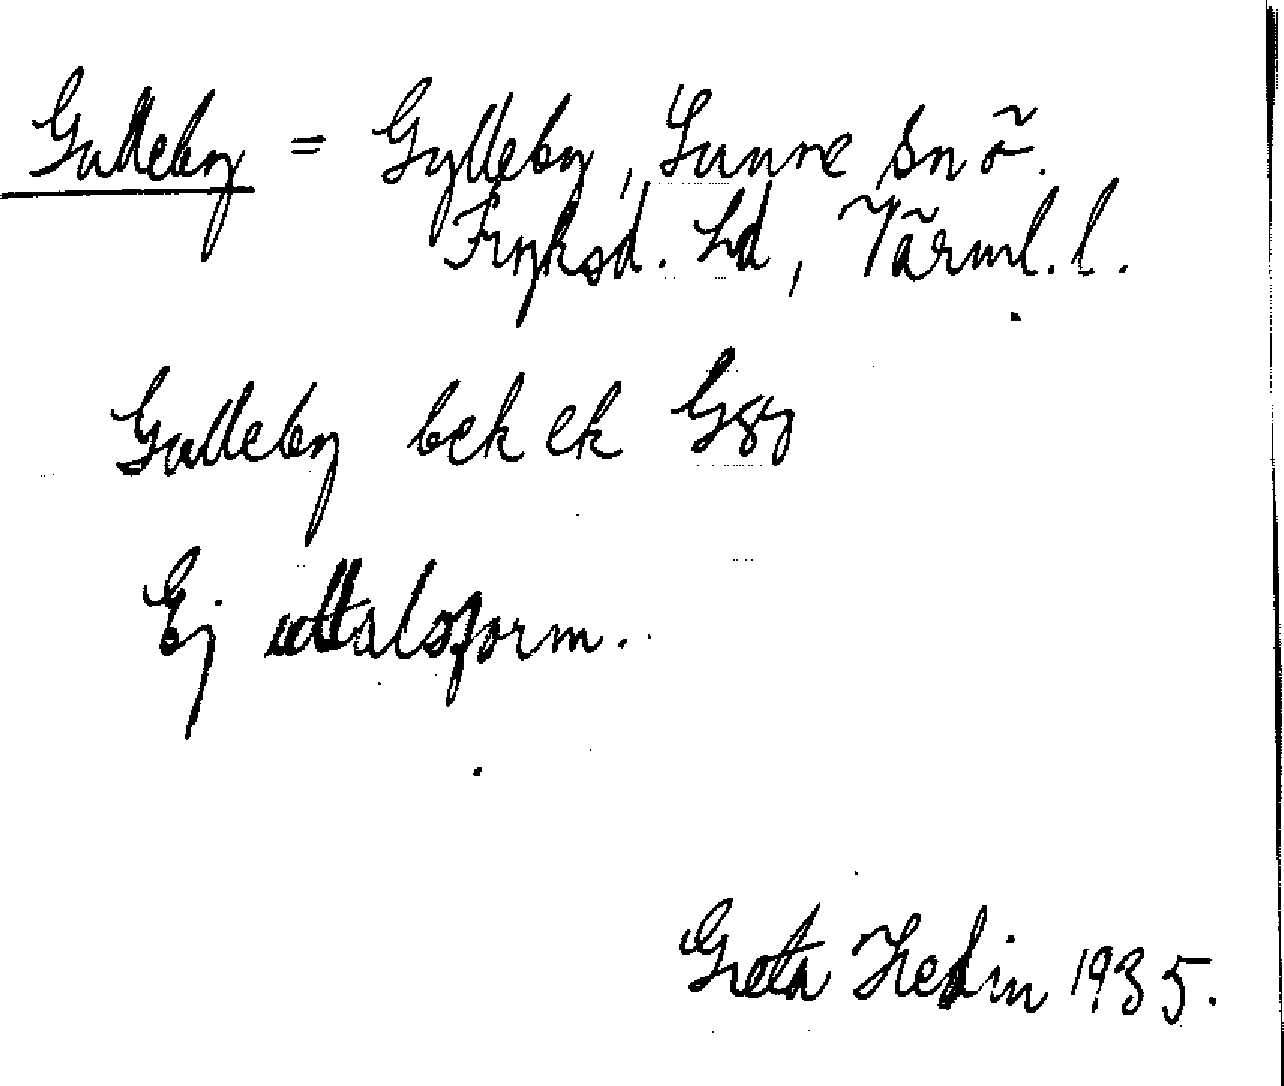 Gulleby = Gylleby, Sunne snö.
Fryksd. hd, Värml. l.
Gulleby bek ek G 87
Ej uttalsform.
Greta Hedin 1935.